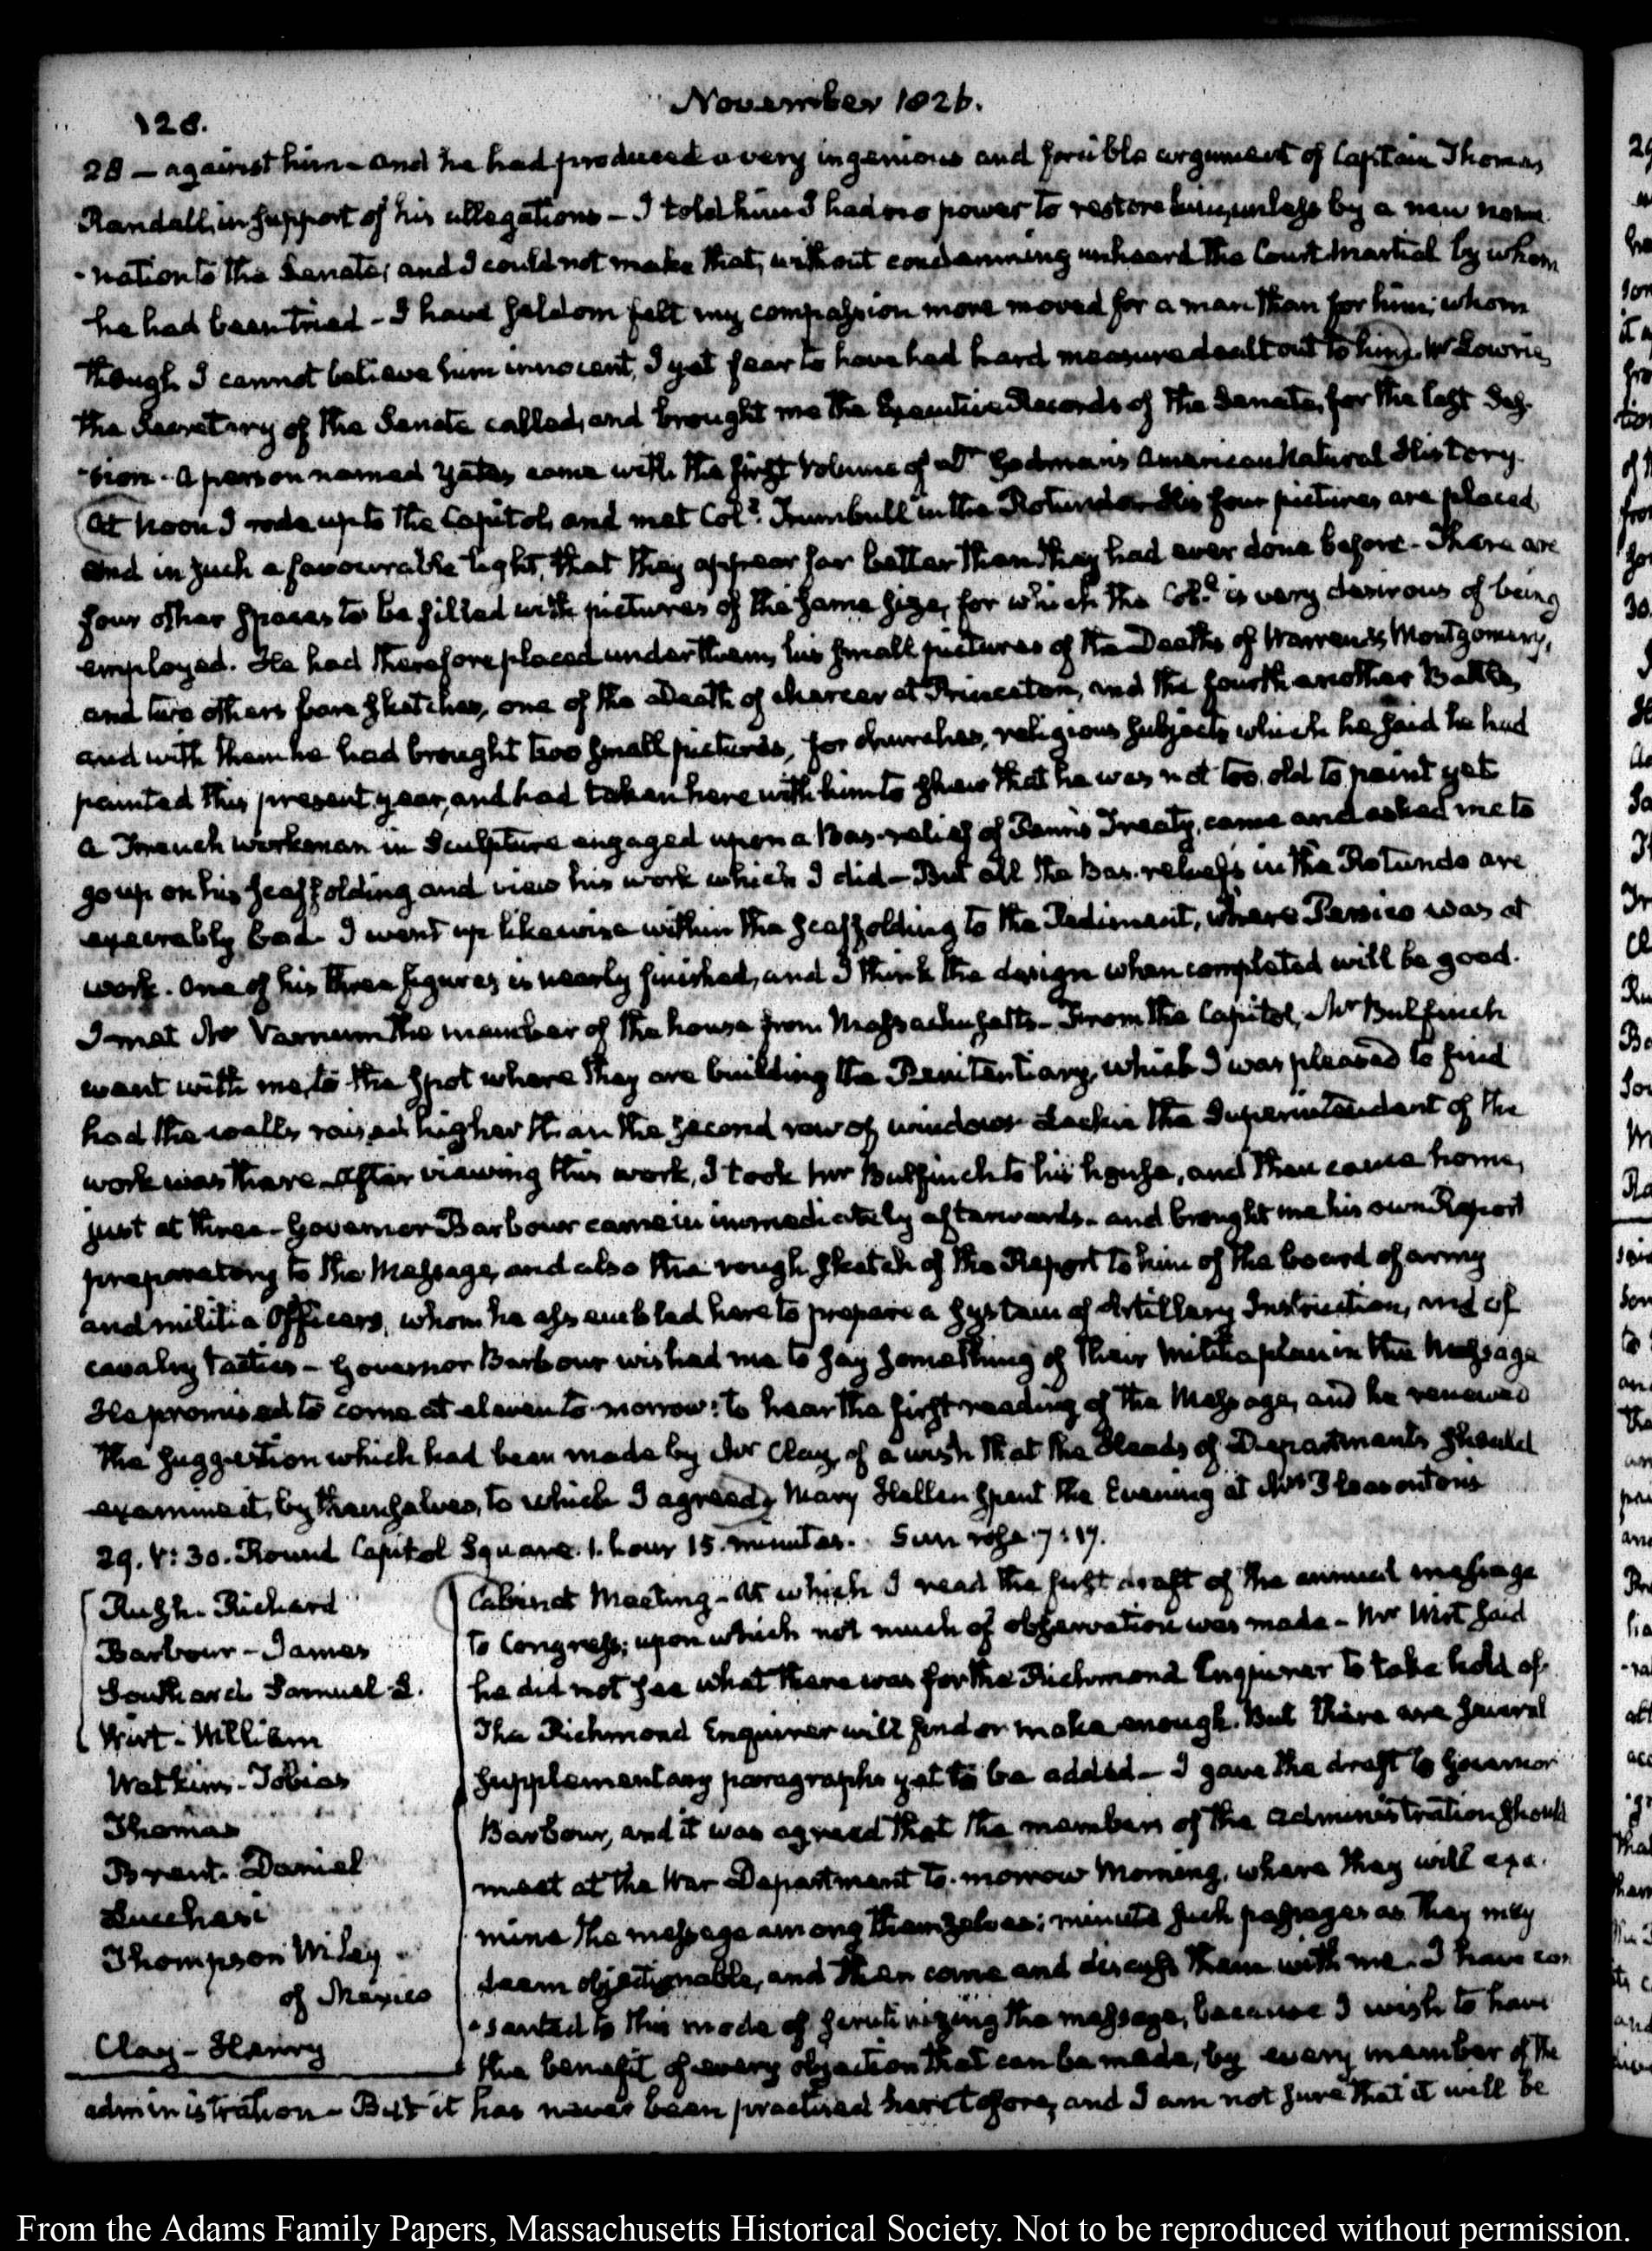 128.
November 1826.
28 — against him — and he had produced a very ingenious and forcible argument of Captain Thomas
Randall, in support of his allegations — I told him I had no power to restore him, unless by a new nomi-
-nation to the Senate; and I could not make that, without condemning unheard the Court Martial by whom
he had been tried - I have seldom felt my compassion more moved for a man than for him; whom
though I cannot believe him innocent, I yet fear to have had hard measure dealt out to him. Mr Lowrie,
the Secretary of the Senate called, and brought me the Executive Records of the Senate, for the last Ses-
-sion - A person named Yates came with the first Volume of Dr Godman's American Natural History.
At Noon I rode up to the Capitol, and met Coll. Trumbull in the Rotunda. His four pictures are placed,
and in such a favourable light, that they appear far better than they had ever done before - There are
four other spaces to be filled with pictures of the same size, for which the Coll. is very desirous of being
employed. He had therefore placed under them, his small pictures of the Deaths of Warren & Montgomery,
and two others bare sketches, one of the Death of Mercer at Princeton, and the fourth another Battle,
and with them he had brought two small pictures, for churches, religious subjects which he said he had
painted this present year, and had taken here with him to shew that he was not too old to paint yet
A French workman in Sculpture engaged upon a Bas-relief of Penn's Treaty, came and asked me to
go up on his scaffolding and view his work which I did — But all the Bas-reliefs in the Rotunda are
execrably bad. I went up likewise within the scaffolding to the Pediment, where Persico was at
work. One of his three figures is nearly finished, and I think the design when completed will be good.
I met Mr Varnum the member of the house from Massachusetts - From the Capitol, Mr Bulfinch
went with me, to the spot where they are building the Penitentiary, which I was pleased to find
had the walls raised higher than the second row of windows. the Superintendent of the
work was there. After viewing this work, I took Mr Bulfinch to his house, and then came home,
just at three - Governor Barbour came in immediately afterwards - and brought me his own Report
preparatory to the Message, and also the rough sketch of the Report to him of the board of army
and militia Officers, whom he assembled here to prepare a system of Artillery Instruction, and of
cavalry tactics — Governor Barbour wished me to say something of their Militia plan in the Message
He promised to come at eleven to-morrow: to hear the first reading of the Message, and he renewed
the suggestion which had been made by Mr Clay, of a wish that the Heads of Departments should
examine it, by themselves, to which I agreed. Mary Hellen spent the Evening at Mrs Pleasonton's
29. V: 30. Round Capitol Square. 1. hour 15. minutes. Sun rose 7:17.
Rush - Richard
Barbour - James
Southard Samuel L.
Wirt - William
Watkins - Tobias
Thomas
Brent - Daniel
Lucchesi
Thompson Wiley
of Mexico
Clay - Henry
Cabinet Meeting - At which I read the first draft of the annual message
to Congress; upon which not much of observation was made - Mr Wirt said
he did not see what there was for the Richmond Enquirer to take hold of.
The Richmond Enquirer will find or make enough. But there are several
supplementary paragraphs yet to be added — I gave the draft to Governor
Barbour, and it was agreed that the members of the administration should
meet at the War Department to-morrow Morning, where they will exa-
mine the message among themselves; minute such passages as they may
deem objectionable, and then come and discuss them with me. I have con-
-sented to this mode of scrutinizing the message, because I wish to have
the benefit of every objection that can be made, by every member of the
administration — But it has never been practised heretofore, and I am not sure that it will be
From the Adams Family Papers, Massachusetts Historical Society. Not to be reproduced without permission.